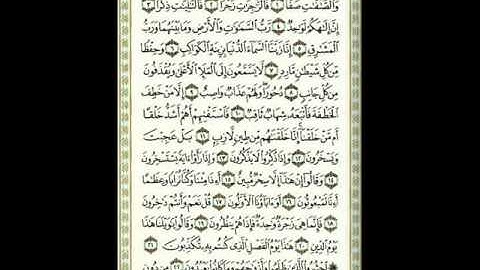 وَالصَّٰٓفَّٰتِ صَفًّا ١ فَالزَّٰجِرَٰتِ زَجْرًا ٢ فَالتَّٰلِيَٰتِ ذِكْرًا ٣
إِنَّ إِلَٰهَكُمْ لَوَٰحِدٌ ٤ رَّبُّ السَّمَٰوَٰتِ وَالْأَرْضِ وَمَا بَيْنَهُمَا وَرَبُّ
الْمَشَٰرِقِ ٥ إِنَّا زَيَّنَّا السَّمَآءَ الدُّنْيَا بِزِينَةٍ الْكَوَاكِبِ ٦ وَحِفْظًا
مِّن كُلِّ شَيْطَٰنٍ مَّارِدٍ ٧ لَّا يَسَّمَّعُونَ إِلَى الْمَلَإِ الْأَعْلَىٰ وَيُقْذَفُونَ
مِن كُلِّ جَانِبٍ ٨ دُحُورًا وَلَهُمْ عَذَابٌ وَاصِبٌ ٩ إِلَّا مَنْ خَطِفَ
الْخَطْفَةَ فَأَتْبَعَهُ شِهَابٌ ثَاقِبٌ ١٠ فَاسْتَفْتِهِمْ أَهُمْ أَشَدُّ خَلْقًا
أَم مَّنْ خَلَقْنَآ إِنَّا خَلَقْنَٰهُم مِّن طِينٍ لَّازِبٍ ١١ بَلْ عَجِبْتَ
وَيَسْخَرُونَ ١٢ وَإِذَا ذُكِّرُوا لَا يَذْكُرُونَ ١٣ وَإِذَا رَأَوْا ءَايَةً يَسْتَسْخِرُونَ
١٤ وَقَالُوٓا إِنْ هَٰذَآ إِلَّا سِحْرٌ مُّبِينٌ ١٥ أَءِذَا مِتْنَا وَكُنَّا تُرَابًا وَعِظَٰمًا
أَءِنَّا لَمَبْعُوثُونَ ١٦ أَوَءَابَآؤُنَا الْأَوَّلُونَ ١٧ قُلْ نَعَمْ وَأَنتُمْ دَٰخِرُونَ
١٨ فَإِنَّمَا هِىَ زَجْرَةٌ وَٰحِدَةٌ فَإِذَا هُمْ يَنظُرُونَ ١٩ وَقَالُوا يَٰوَيْلَنَا هَٰذَا
يَوْمُ الدِّينِ ٢٠ هَٰذَا يَوْمُ الْفَصْلِ الَّذِى كُنتُم بِهِۦ تُكَذِّبُونَ ٢١
۞ احْشُرُوا الَّذِينَ ظَلَمُوا وَأَزْوَٰجَهُمْ وَمَا كَانُوا يَعْبُدُونَ ٢٢ مِن دُونِ